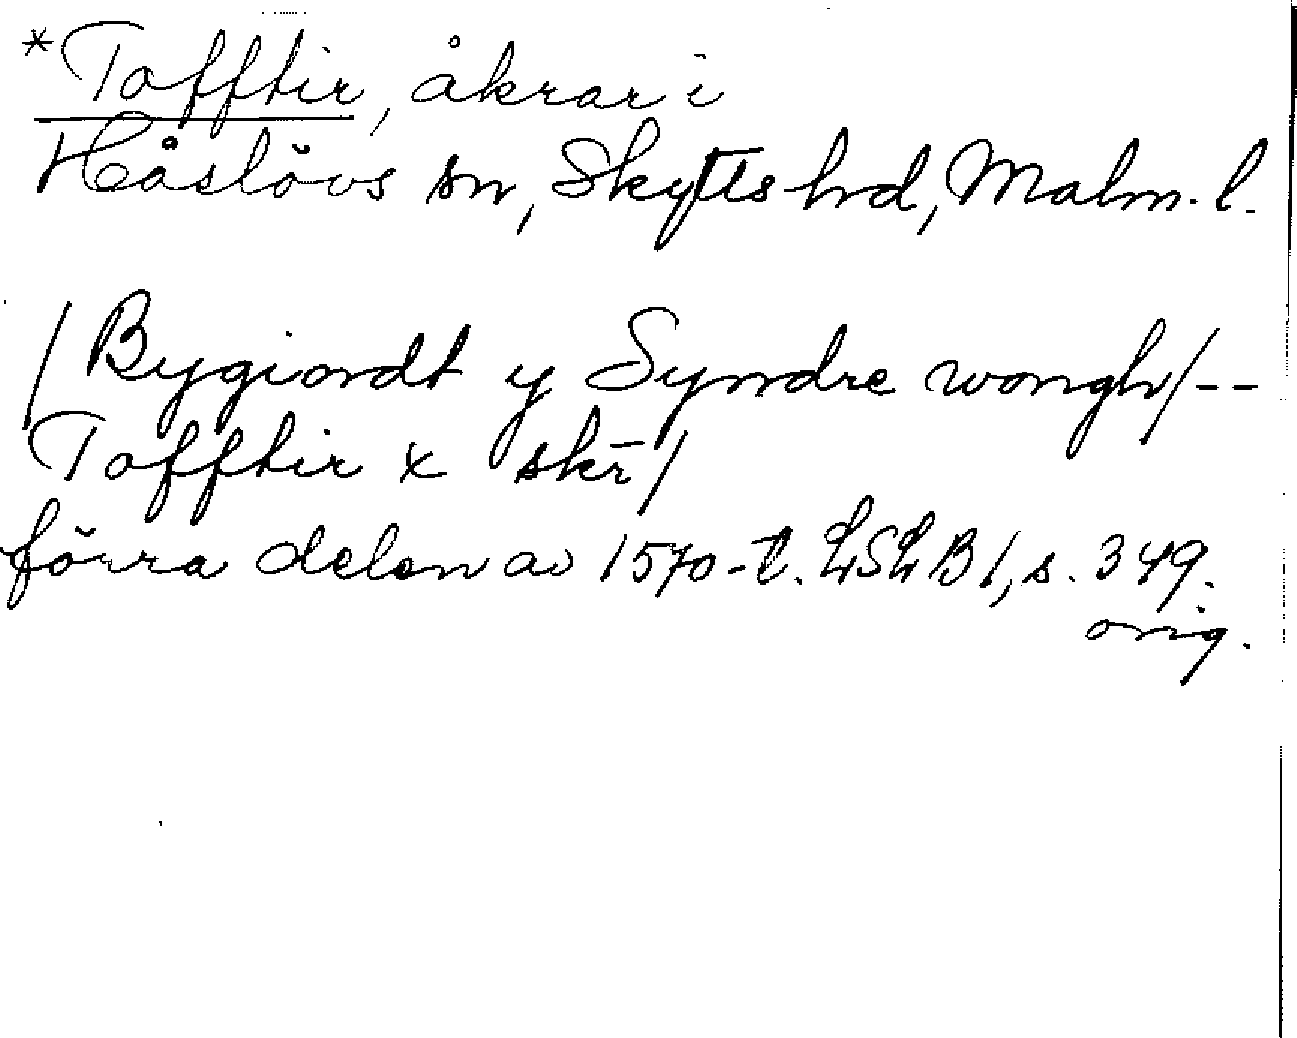 *Tofftir, åkrar i
Håslövs sn, Skytts hrd, Malm. l.
/Bygiordt y Syndre wongh/--
Tofftir x skr̄/
förra delen av 1570-t. LSLB 1, s. 349.
orig.